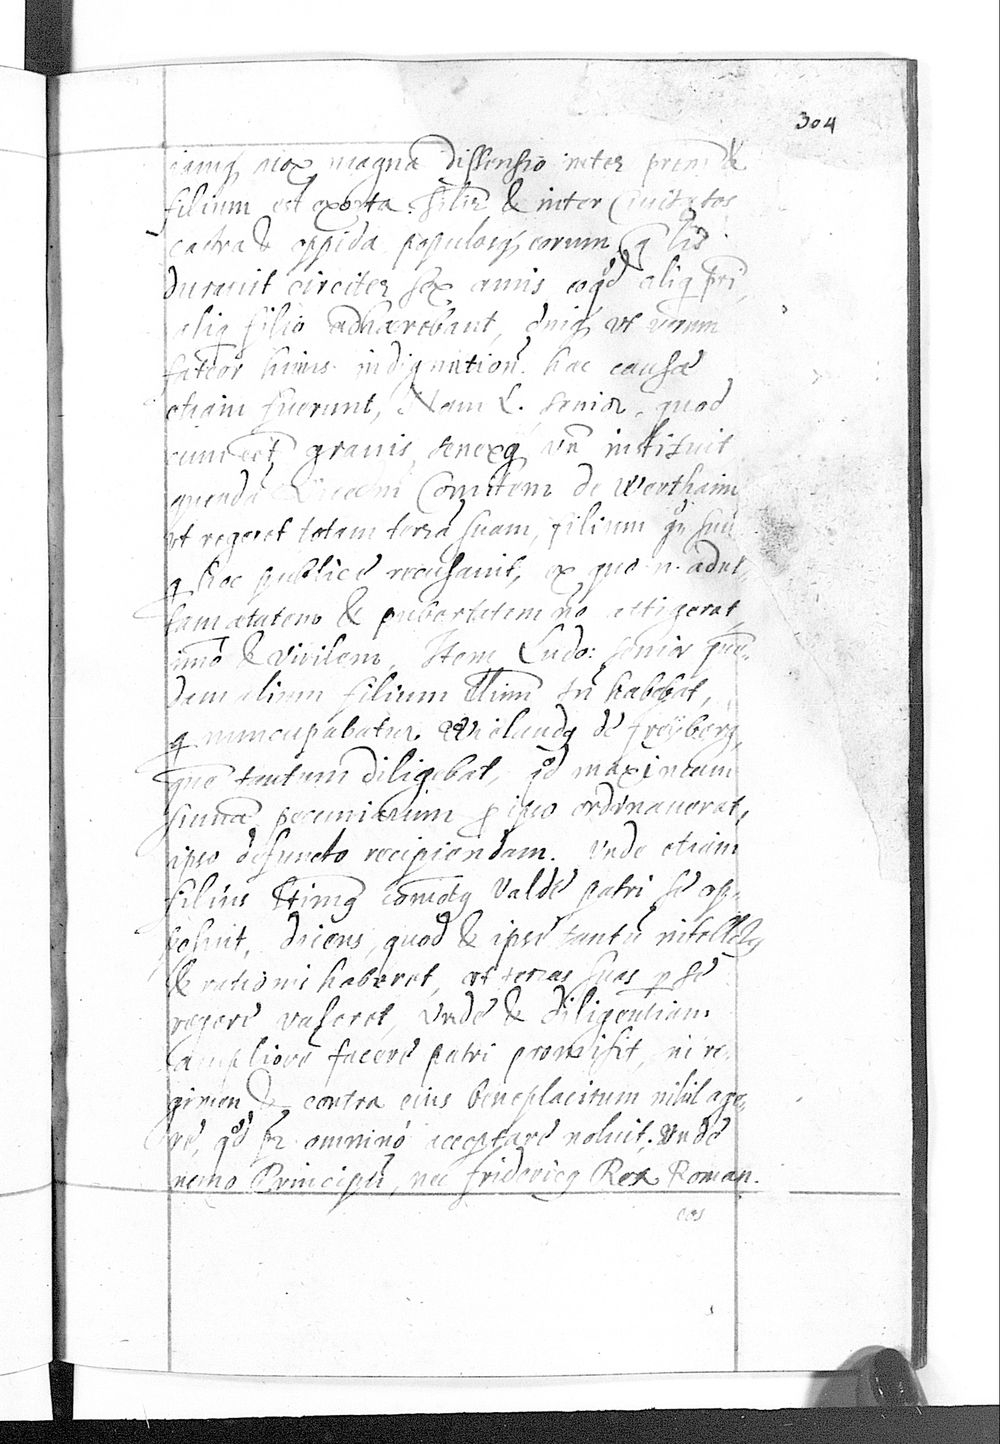 304
mox magna dissensio inter prem &
filium est exorta. Silr & inter Ciuitates
castra & oppida populosq, eorum, q lis
durauit circiter sex annis eoqd aliq pri,
aliq filio adhaerebant, vt verum
fatear huius indignation. hae causae
etiam fuerunt, Nam L. senior, quod
grauis, senexq, instituit
quendā Comitem de Werthaim
vt regeret totam terrā suam, filium suū
q hoc publice recusauit, ex quo n. adul-
tam aetatem & pubertatem no attigerat
imo & virilem, Item Ludo: senior quē-
dam alium filium tn habebat,
q nuncupabatur Wielandq de Freÿberg,
quē tantum diligebat, qd maximam
summā pecuniarum p ipso ordinauerat,
ipso defuncto recipiendam. Vnde etiam
filius comotq valde patri se op-
posuit, dicens, quod & ipse tantū intellectq
& rationis haberet, vt terras suas p se
regere valeret, Vnde & diligentiam
ampliore facere patri promisit, in re-
gimen & contra eius beneplacitum nihil age-
re, qd pr omnino acceptare noluit. Vnde
nemo Principū, nec fridericq Rex Roman.